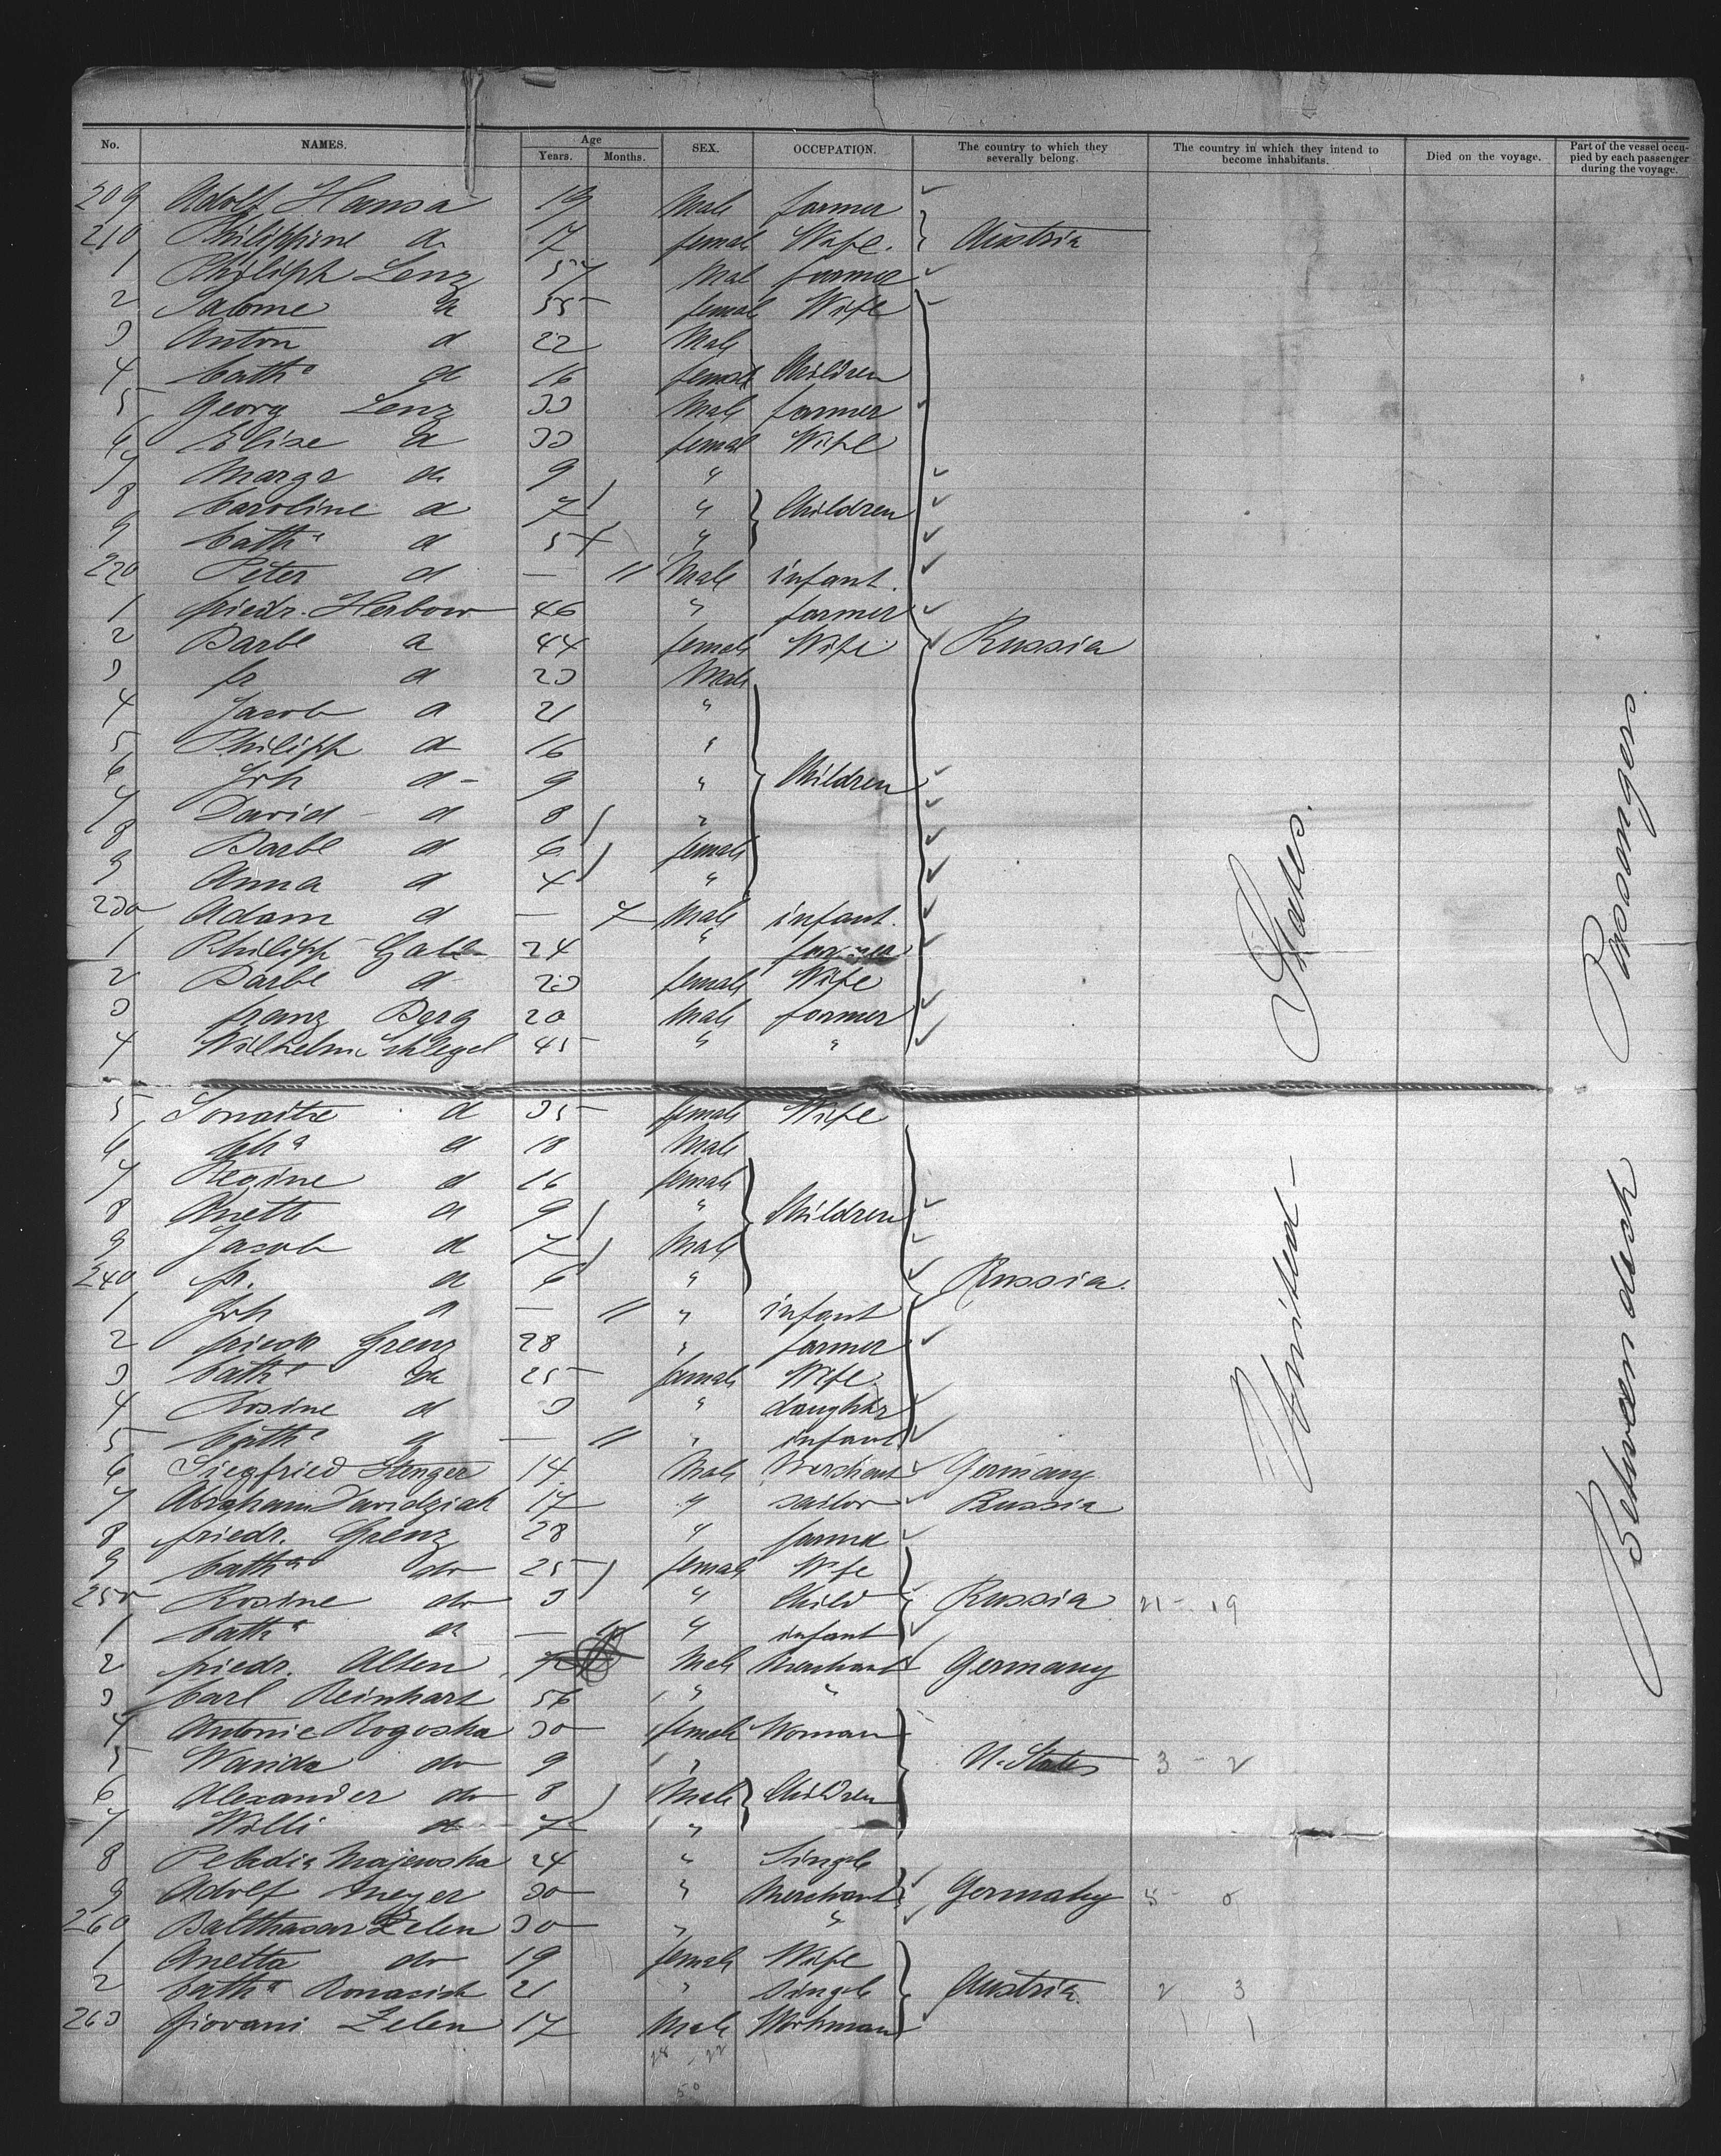 No. NAMES. Age Years. Months. SEX. OCCUPATION. The country to which they severally belong. The country in which they intend to become inhabitants. Died on the voyage. Part of the vessel occupied by each passenger during the voyage.
209 Adolf Hansa 19 Male farmer
210 Philippine do 17 female Wife. Austria
1 Philipph Lenz 57 Mal farmer
2 Salome do 55 female Wife
3 Anton d 22 Male
4 Cath a d 16 female Children
5 Georg Lenz 33 Male farmer
6 Elise d 33 female Wife
7 Marga do 9 "
8 Caroline d 7 " Children
9 Cath a d 5 "
220 Peter d — 11 Male infant.
1 friedr. Herbow 46 " farmer
2 Barbe a 44 female Wife Russia
3 fr d 23 Male
4 Jacob d 21 "
5 Philipp d 16 "
6 Joh d 9 " Children
7 David d 8 "
8 Barbe d 6 female
9 Anna d 4 "
230 Adam d — 7 Male infant.
1 Philipp 24 " farmer
2 Barbe d 23 female Wife
3 franz Berg 20 Male farmer
4 Wilhelm Schlegel 45 " "
5 d 35 female Wife
6 d 18 Male
7 Regine d 16 female
8 Anette d 9 " Children
9 Jacob d 7 Male
240 fr. d 6 " Russia.
1 Joh d — 11 " infant
2 friedr Grenz 28 " farmer
3 Cath a do 25 female Wife
4 Rosine d 3 " daughter
5 Cath a d — 11 " infant
6 Siegfried Stenger 14 Male Merchant Germany
7 Abraham Davidziak 17 " sailor Russia
8 friedr. Grenz 28 " farmer
9 Cath a do 25 female Wife
250 Rosine do 3 " Child Russia 21 - 19
1 Cath a d — " infant
2 friedr. Alten Male Merchant Germany
3 Carl Reinhart 56 " "
4 Antonie Rogoska 30 female Woman
5 Wanda do 9 " U. States 3 - 2
6 Alexander do 8 Male Children
7 Willi d 7 "
8 Majewska 24 " Single
9 Adolf Meyer 30 " Merchant Germany 5 - 0
260 Balthasar Zelen 30 " "
1 Anetta do 19 female Wife
2 Cath a 21 " Single Austria 2 3
263 Giovani Zelen 17 Male Workman
28 - 22
50
United - States.
Between deck Passangers.